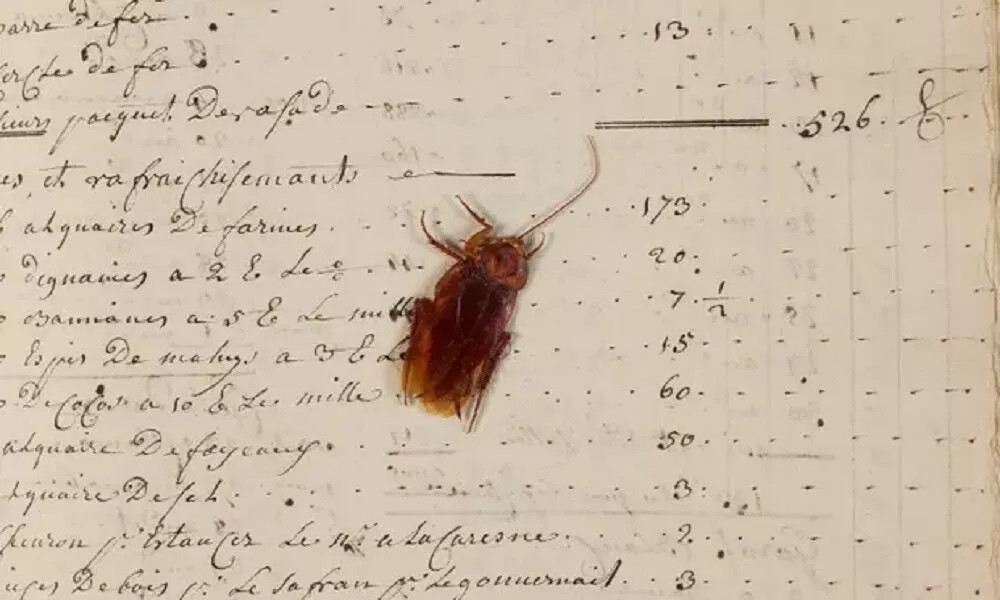 barre de fer 13
cercles de fer
paquet De rasade 526
es, et rafraichisemants
alquaires De farines 173
dignames a 2 E Le c 20
Bannanes a 5 E Le mille 7 1/2
Espis De mahys a 3 E Le 15
De Cocos a 10 E Le mille 60
alquaire De fayeaux 50
alquaire De sel 3
chevron pr. Estancer Le nre a la Caresne 2
De bois pr. Le safran pr. Le gouvernail 3